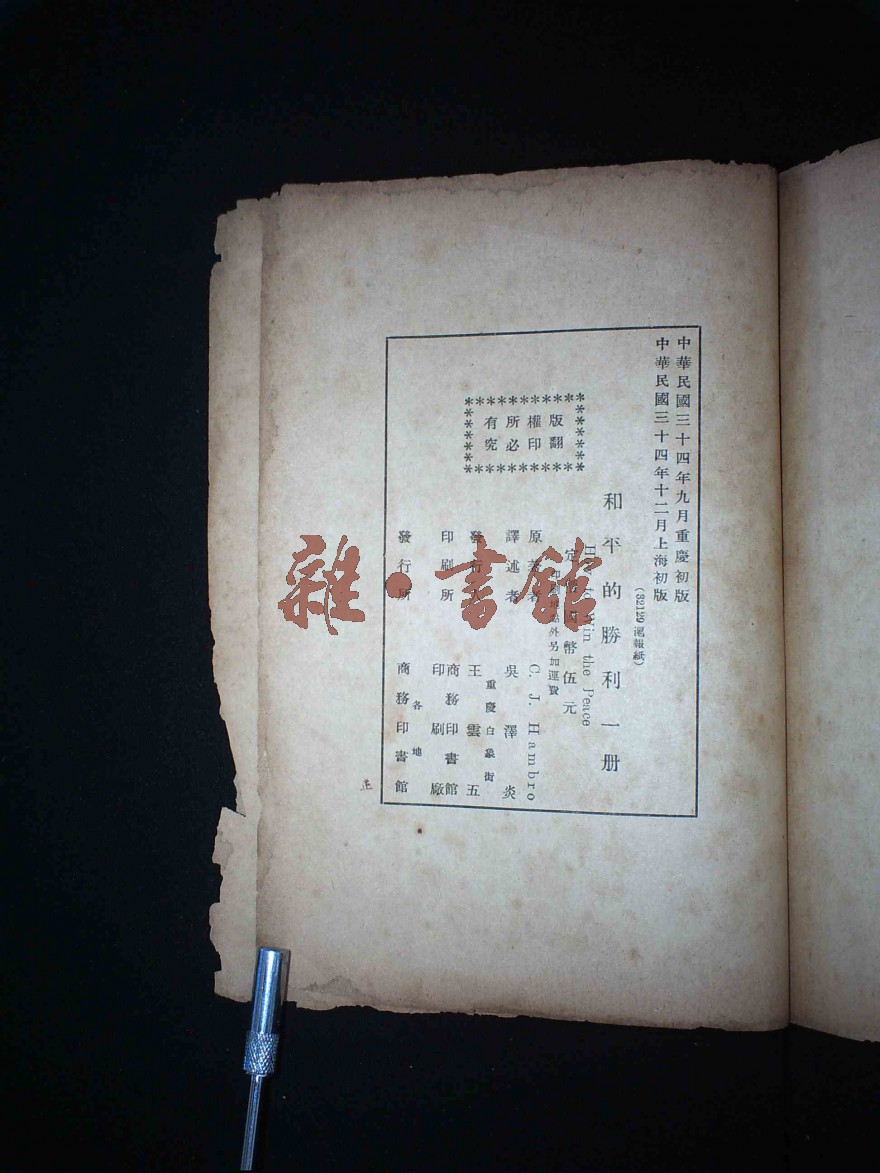 中華民國三十四年九月重慶初版
中華民國三十四年十二月上海初版
(32129 滬報紙)
和平的勝利一册
How to Win the Peace
定價國幣伍元
印刷地點外另加運費
版權所有
翻印必究
原著者 C. J. Hambro
譯述者 吳澤炎
重慶白象街
發行人 王雲五
印刷所 商務印書館
印刷廠
各地
發行所 商務印書館
雜·書館